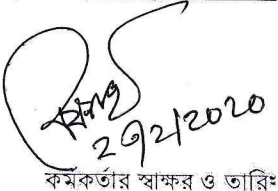 ২৭/২/২০২০
কর্মকর্তার স্বাক্ষর ও তারিঃ